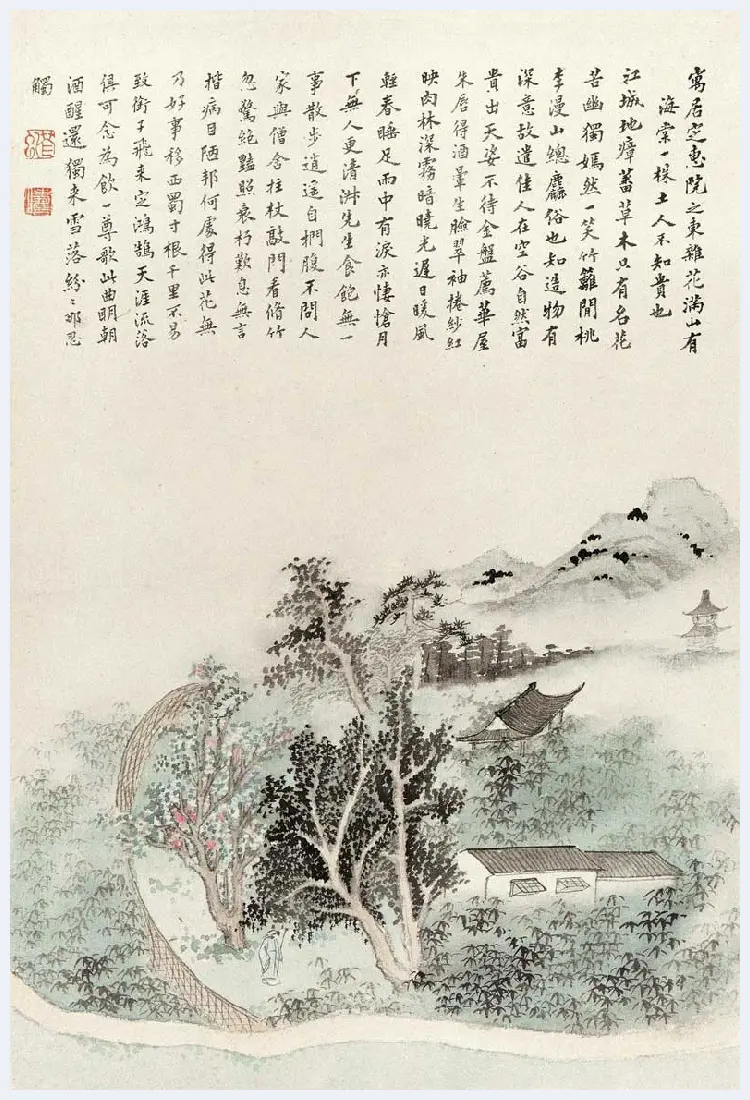 寓居定惠院之東雜花滿山有
海棠一株土人不知貴也
江城地瘴蕃草木只有名花
苦幽獨嫣然一笑竹籬間桃
李漫山總麤俗也知造物有
深意故遣佳人在空谷自然富
貴出天姿不待金盤薦華屋
朱唇得酒暈生臉翠袖捲紗紅
映肉林深霧暗曉光遲日暖風
輕春睡足雨中有淚亦悽愴月
下無人更清淑先生食飽無一
事散步逍遙自捫腹不問人
家與僧舍拄杖敲門看脩竹
忽驚絕豔照衰朽歎息無言
揩病目陋邦何處得此花無
乃好事移西蜀寸根千里不易
致銜子飛來定鴻鵠天涯流落
俱可念為飲一尊歌此曲明朝
酒醒還獨來雪落紛〻那忍
觸